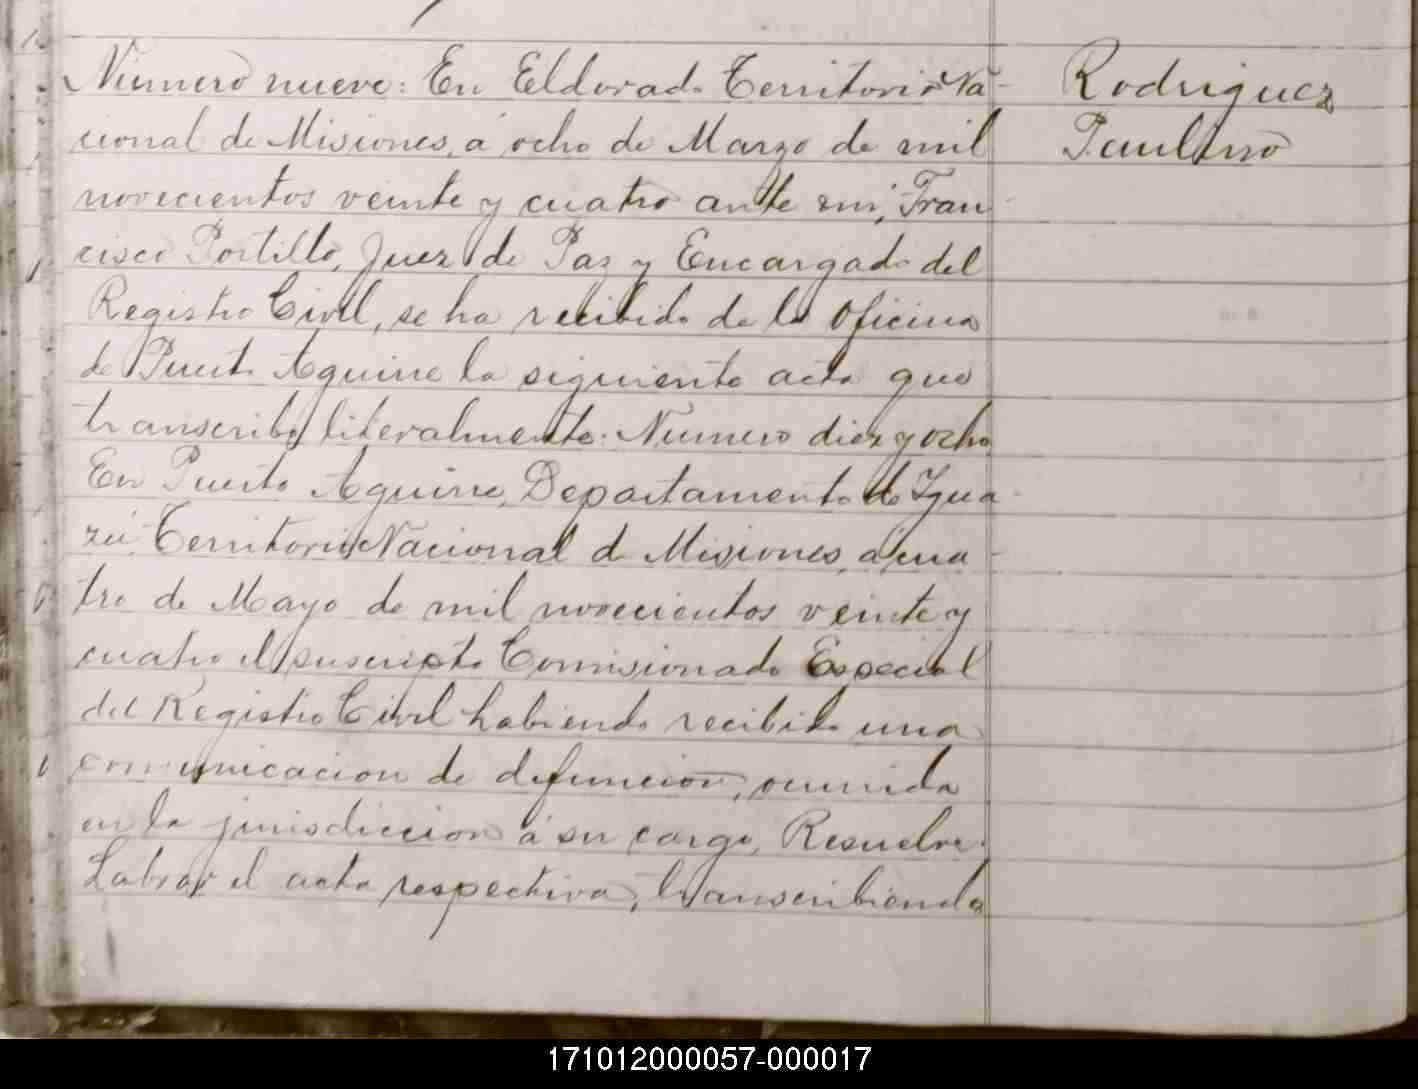 Número nueve: En Eldorado Territorio Na-
cional de Misiones, á ocho de Marzo de mil
novecientos veinte y cuatro ante mi, Fran-
cisco Portillo, Juez de Paz y Encargado del
Registro Civil, se ha recibido de la Oficina
de Puerto Aguirre la siguiente acta que
transcribo literalmente: Numero diez y ocho
En Puerto Aguirre, Departamento de Igua-
zú, Territorio Nacional de Misiones, a cua-
tro de Mayo de mil novecientos veinte y
cuatro el suscripto Comisionado Especial
del Registro Civil habiendo recibido una
comunicacion de defuncion, ocurrida
en la jurisdiccion á su cargo, Resuelve:
Labrar el acta respectiva, transcribiendo
Rodriguez
Paulino
171012000057-000017